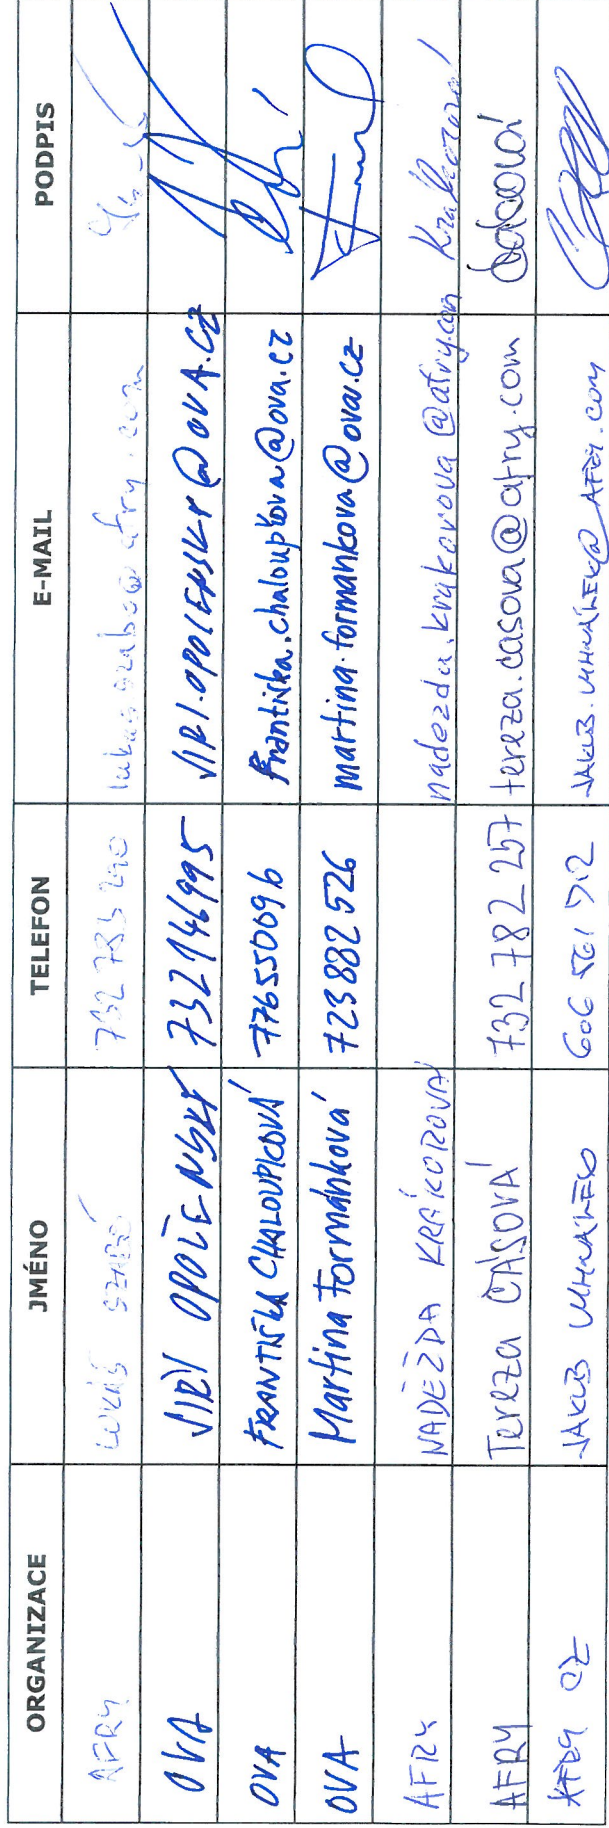 ORGANIZACE JMÉNO TELEFON E-MAIL PODPIS
AFRY LUKÁŠ SZABÓ 732 783 290 lukas.szabo@afry.com
OVA JIŘÍ OPOLENSKÝ 732146995 JIRI.OPOLENSKY@OVA.CZ
OVA FRANTIŠKA CHALOUPKOVÁ 776550096 frantiska.chaloupkova@ova.cz
OVA Martina Formánková 723 882 526 martina.formankova@ova.cz
AFRY NADĚŽDA KRÁKOROVÁ nadezda.krakorova@afry.com Krákorová
AFRY Tereza ČÁSOVÁ 732 782 257 tereza.casova@afry.com Čásová
AFRY CZ JAKUB